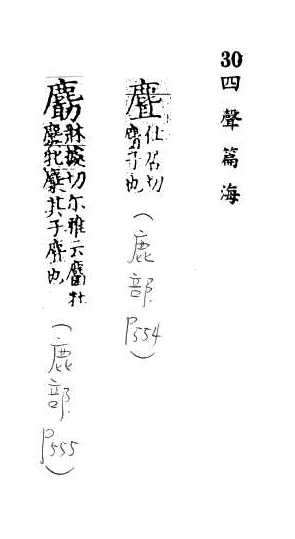 30四聲篇海
仕居切
子也
(鹿部
P554)
麆
牀據切尔雅云麕牡
麌牝麜其子麆也
(鹿部
P555)